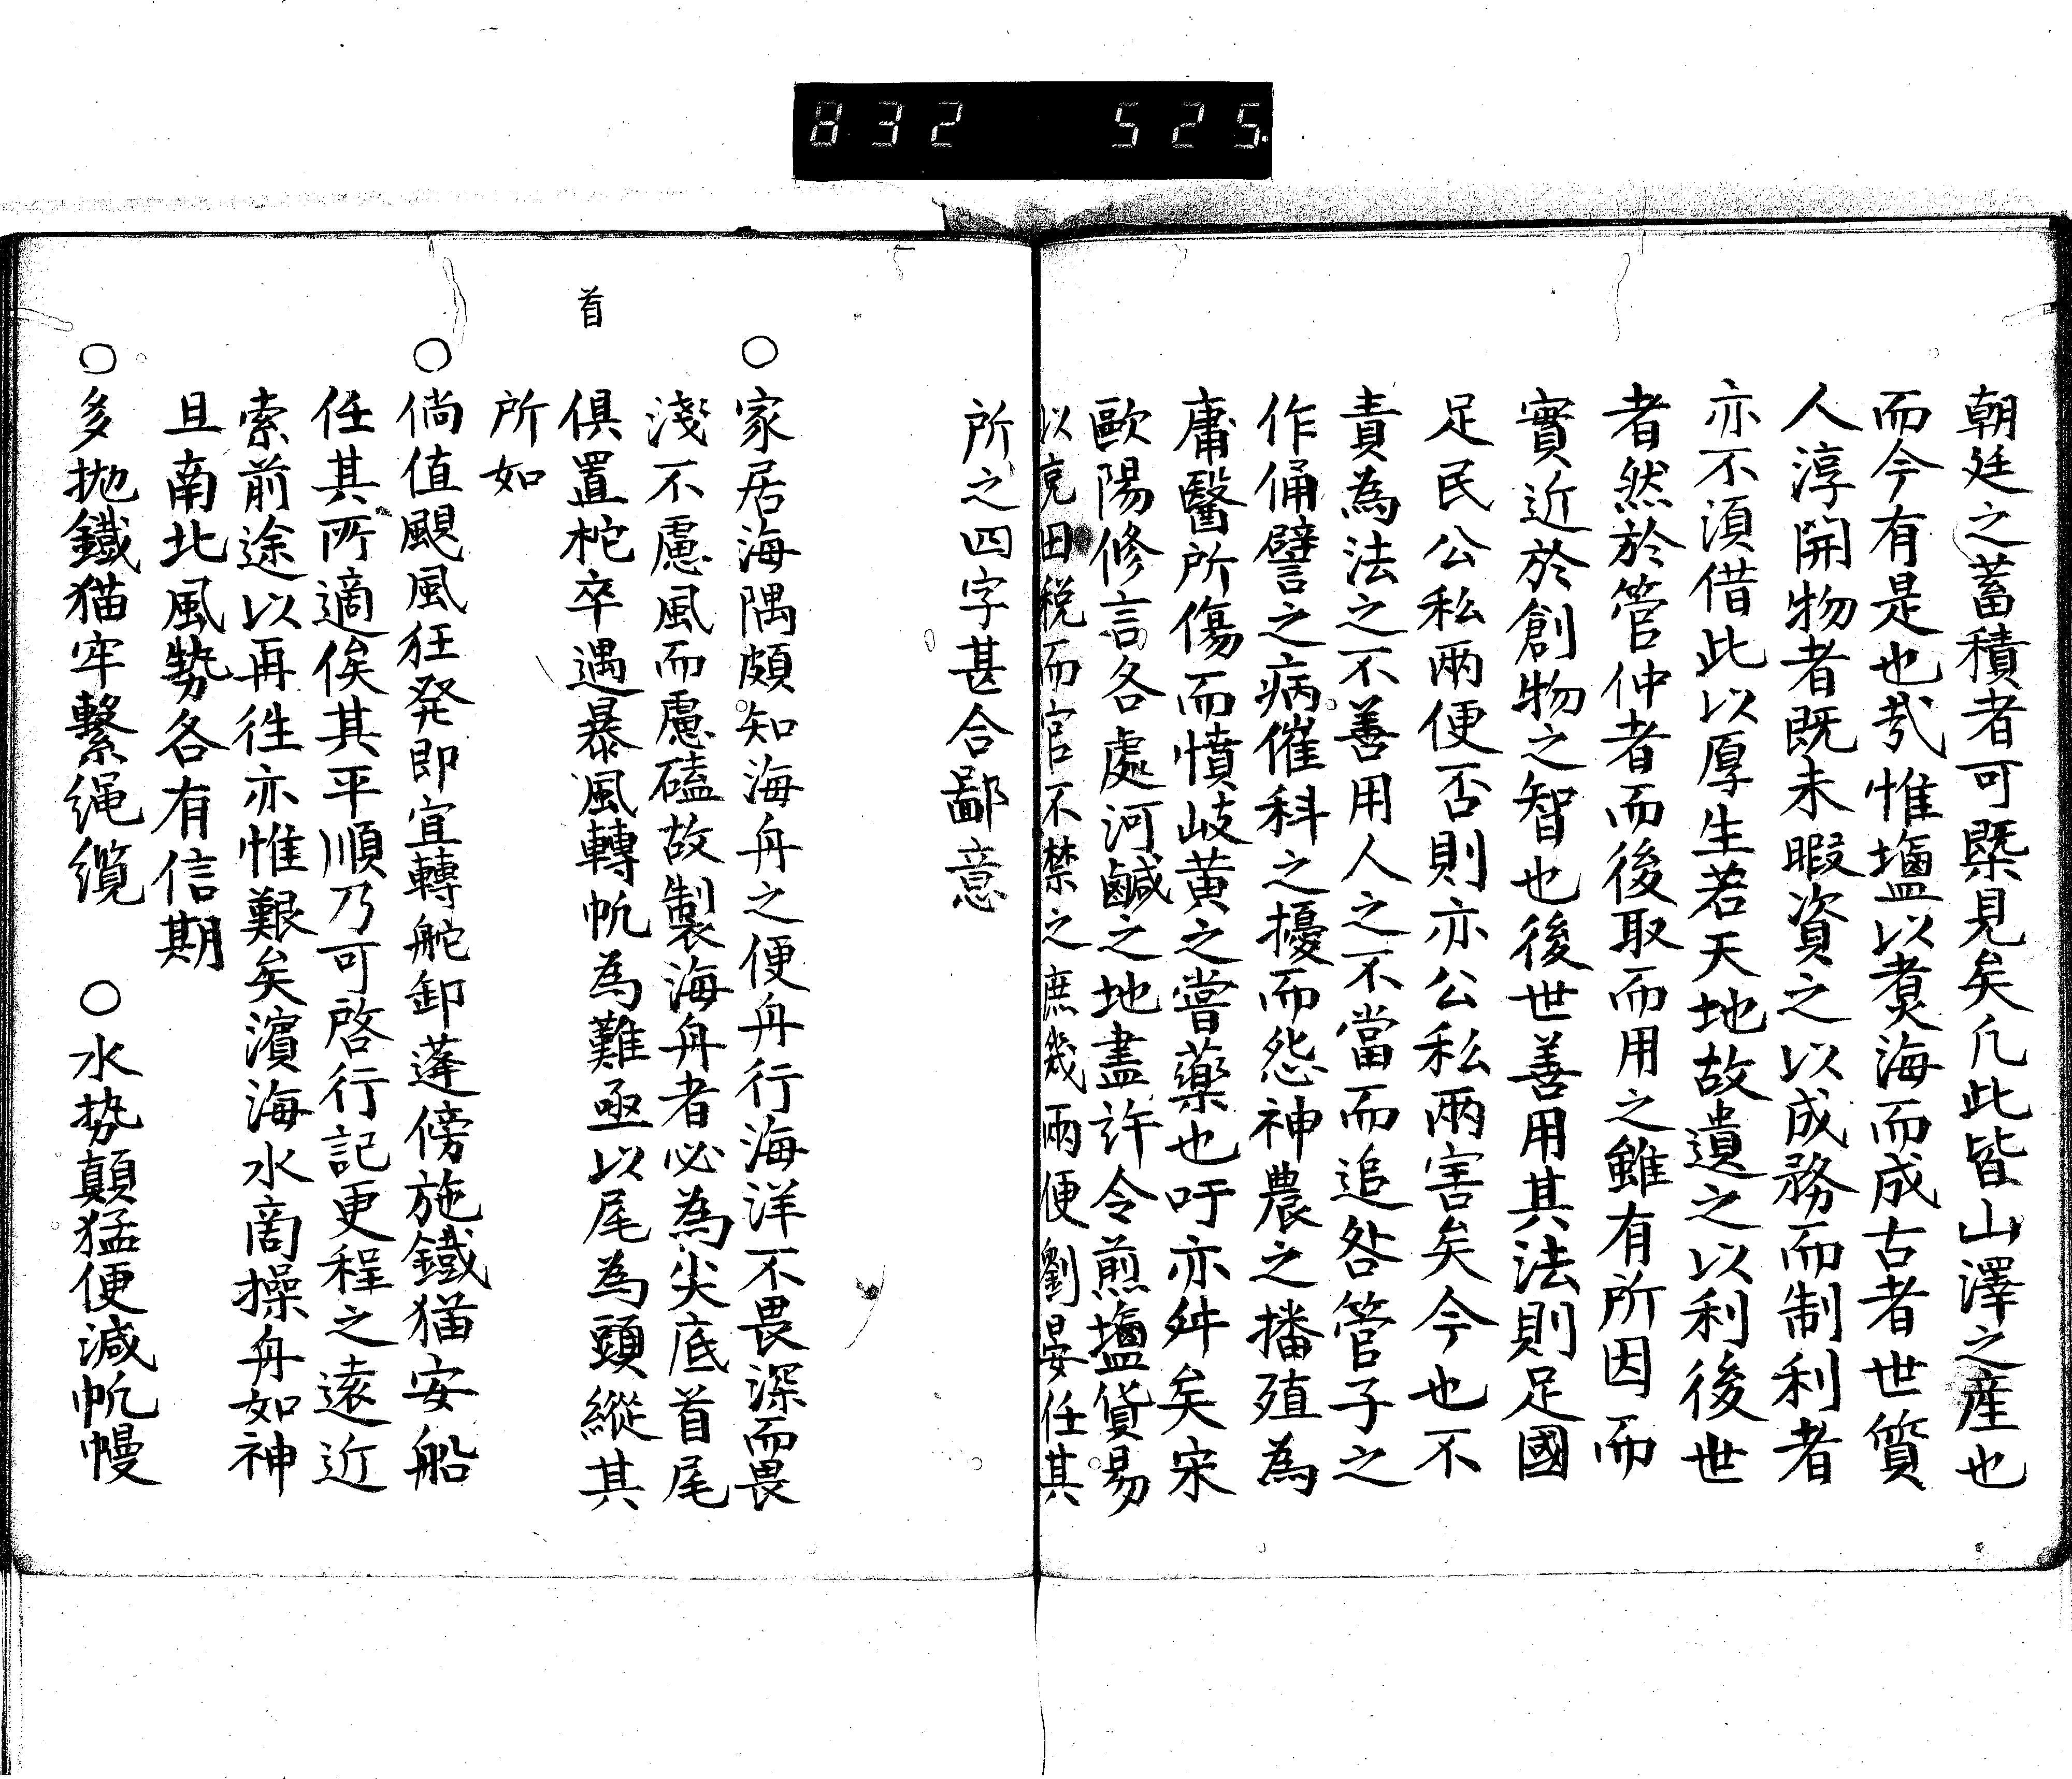 832 525
朝廷之蓄積者可槩見矣凢此皆山澤之産也
而今有是也㢤惟塩以煑海而成古者世質
人淳開物者既未暇資之以成務而制利者
亦不湏借此以厚生若天地故遺之以利後世
者然於管仲者而後取而用之雖有所因而
實近於創物之智也後世善用其法則足國
足民公私兩便否則亦公私兩害矣今也不
責為法之不善用人之不當而追咎管子之
作俑譬之病催科之擾而怨神農之播殖為
庸醫所傷而憤岐黄之嘗藥也吁亦舛矣宋
歐陽修言各處河鹹之地盡許令煎塩貸易
以克田税而官不禁之庶幾兩便劉晏任其
所之四字甚合鄙意
首
○家居海隅頗知海舟之便舟行海洋不畏深而畏
淺不慮風而慮礚故製海舟者必為尖底首尾
俱置柁卒遇暴風轉帆為難亟以尾為頭縱其
所如
○倘值颶風狂発即宜轉舵卸蓬傍施鐡猫安船
任其所適俟其平順乃可啓行記更程之遠近
索前途以再徃亦惟艱矣濵海水啇操舟如神
且南北風勢各有信期
○多抛鐵猫牢繫绳纜 ○水势顛猛便減帆幔